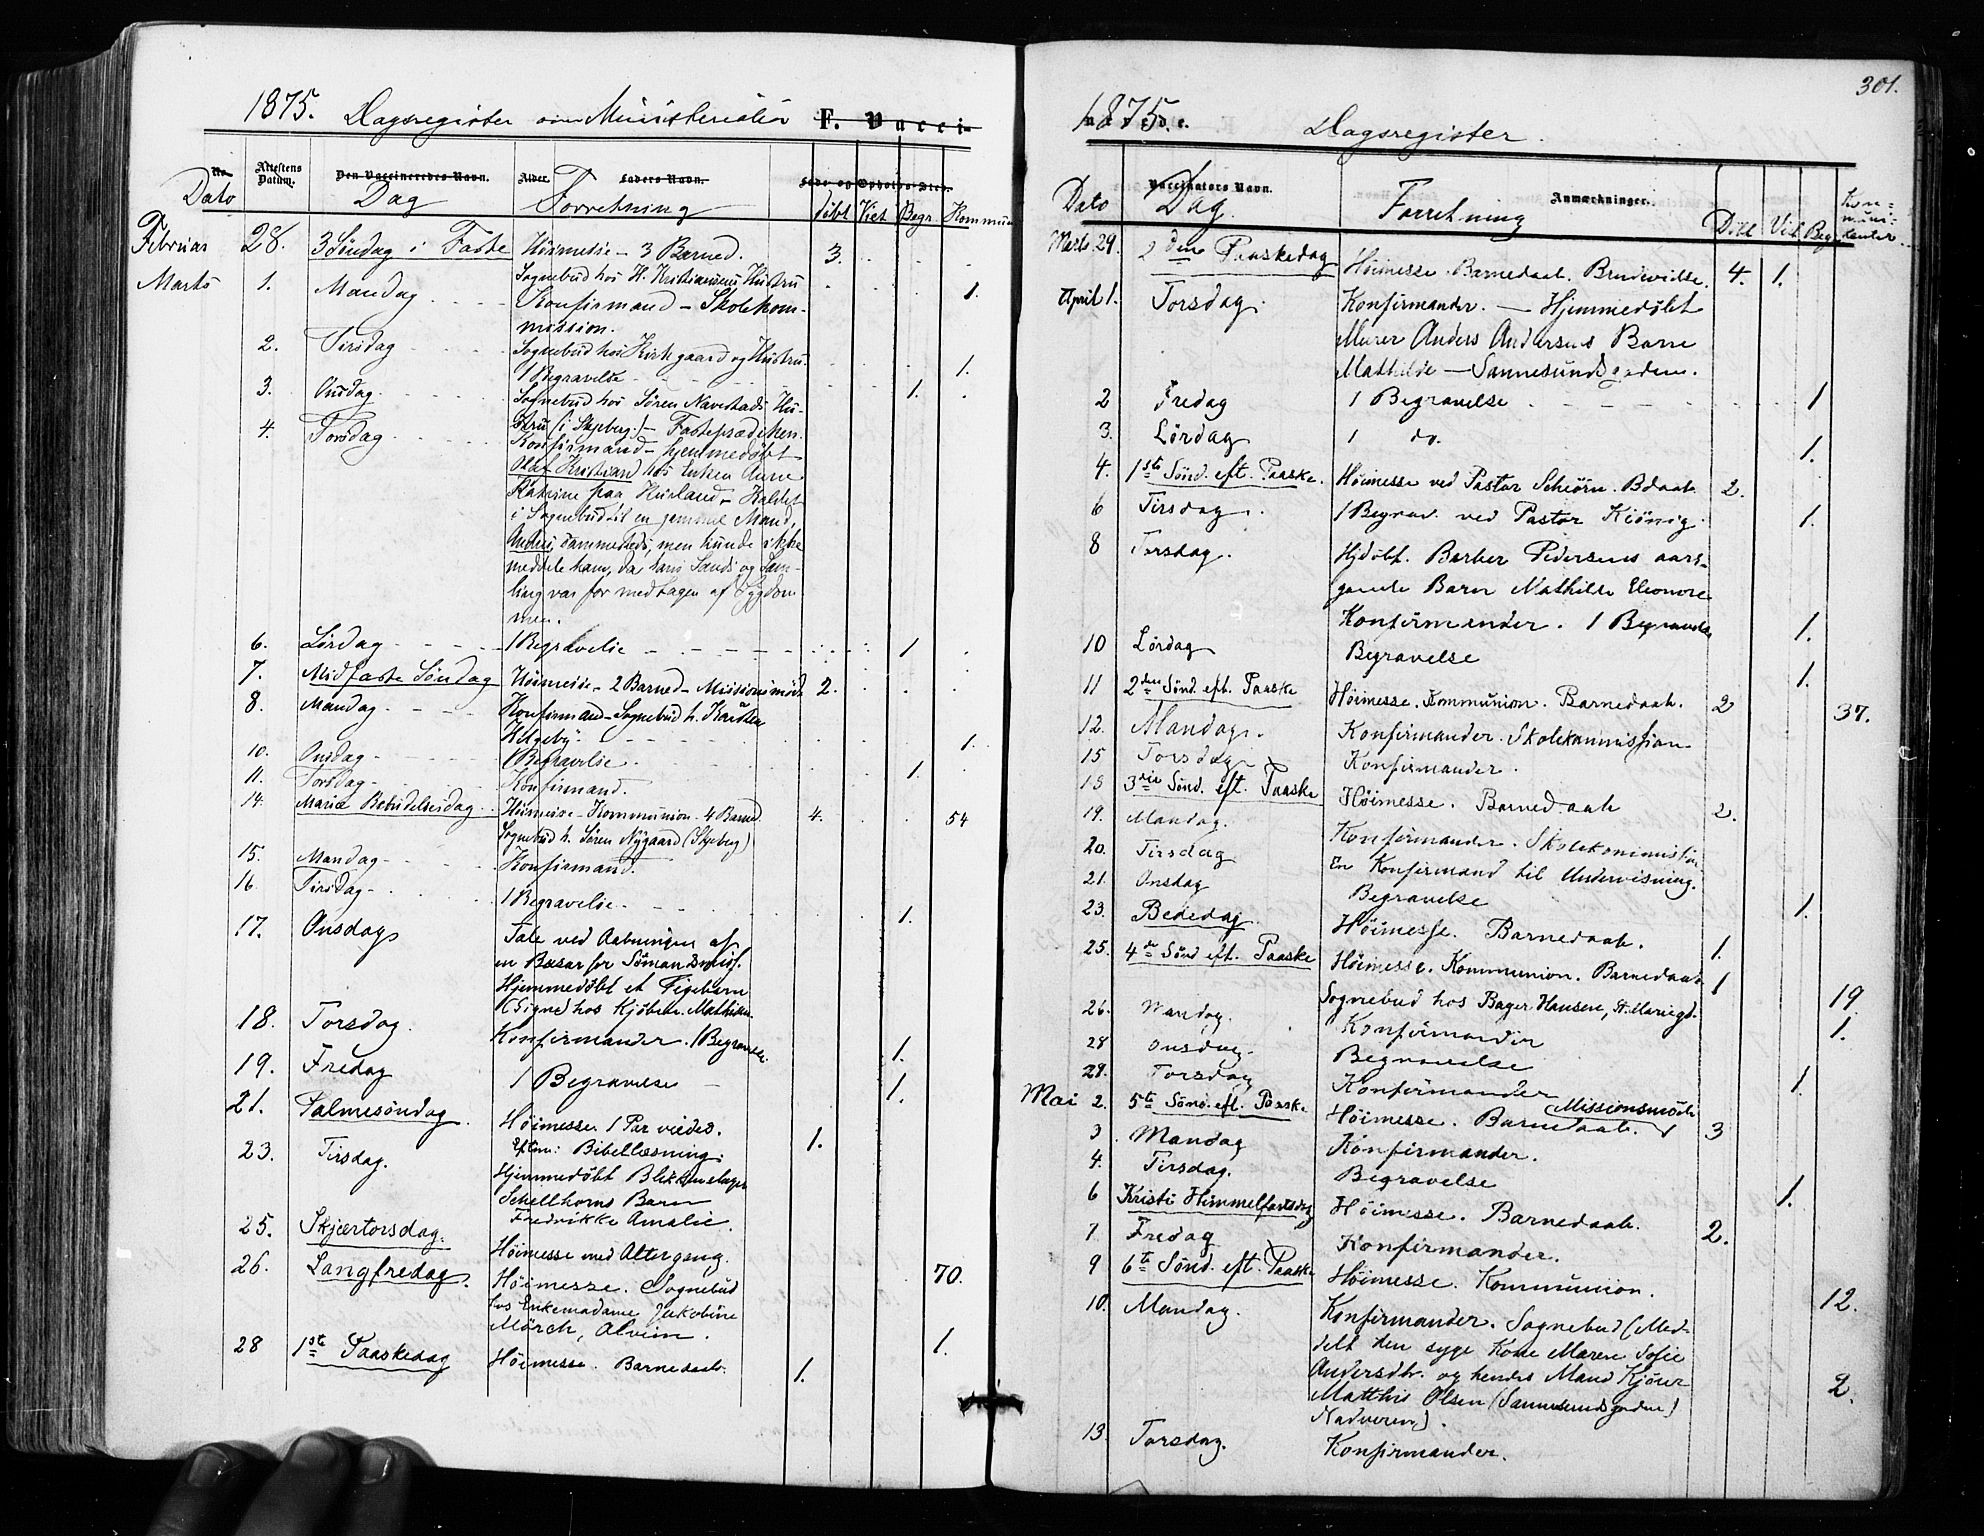 1875. Dagsregister over Ministerialia F. Vacci-
No Attestens Datum. Den Vaccineredes Navn. Alder. Faders Navn. Føde- og Opholds-Sted.
Dato Dag Forretning døbt Viet Begr. Kommun
Februar 28. 3 Søndag i Faste Høimesse - 3 Barned. 3.
Marts 1. Mandag Sognebud hos H. Kristiansens Hustru
Konfirmand - Skolekom- 1.
mission.
2. Tirsdag Sognebud hos Kirkgaard og Hustru. 1.
3. Onsdag 1 Begravelse 1.
4. Torsdag Sognebud hos Søren Navestads Hu-
stru (i Skjeberg) - Fasteprædiken.
Konfirmand - hjemmedøbt
Olaf Kristian hos Enken Anne
Katrine paa Hurland - Kaldet
i Sognebud til en gammel Mand,
sammesteds, men kunde ikke
meddele ham, da hans Sands og Sam-
ling var for medtagen af Sygdom
men.
6. Lørdag 1 Begravelse 1
7. Midfaste Søndag Høimesse - 2 Barned - Missionsmøde 2.
8. Mandag Konfirmand - Sognebud h. Karsten
Helgeby 1.
10. Onsdag 1 Begravelse 1.
11. Torsdag Konfirmand.
14. Mariæ Bebudelsesdag Høimesse - Kommunion - 4 Barned. 4. 54
Sognebud h. Søren Nygaard (Skjeberg)
15. Mandag Konfirmand.
16. Tirsdag 1 Begravelse 1.
17. Onsdag Tale ved Aabningen af
en Basar for Sømandsmiss.
Hjemmedøbt et Pigebarn
(Signe) hos Kjøbm. Mathisen.
18. Torsdag. Konfirmander. 1 Begravelse. 1.
19. Fredag 1 Begravelse 1.
21. Palmesøndag. Høimesse. 1 Par viedes. 1.
Efterm: Bibellæsning.
23. Tirsdag. Hjemmedøbt Blikkenslager
Schellhorns Barn
Fredrikke Amalie.
25. Skjærtorsdag. Høimesse med Altergang. 70.
26. Langfredag. Høimesse. Sognebud
hos Enkemadame Jakobine
Mørch, Alvim. 1.
28 1ste Paaskedag Høimesse. Barnedaab. 1.

301.
1875. nerede. Dagsregister.
Vaccinators Navn. Anmærkninger.
Dato Dag. Forretning Døbt Viet Begr. Kommunikanter
Marts 29. 2den Paaskedag Høimesse. Barnedaab. Brudevielse. 4. 1.
April 1. Torsdag. Konfirmander. - Hjemmedøbt
Murer Anders Andersens Barn
Mathilde - Sannesundsgaden.
2 Fredag 1 Begravelse 1
3. Lørdag 1 do. 1.
4. 1ste Sønd. eft. Paaske. Høimesse ved Pastor Schiörn. Bdaab. 2.
6 Tirsdag. 1 Begrav. ved Pastor Kiönig. 1.
8 Torsdag. Hjdøbt. Barber Pedersens aars-
gamle Barn Mathilde Eleonore
Konfirmander. 1 Begravelse 1.
10 Lördag Begravelse 1.
11 2den Sønd. eft. Paaske Høimesse. Kommunion. Barnedaab. 2 37.
12. Mandag. Konfirmander. Skolekommission
15 Torsdag Konfirmander.
18 3die Sønd. eft. Paaske Høimesse. Barnedaab 2.
19. Mandag. Konfirmander. Skolekommission
20. Tirsdag En Konfirmand til Undervisning.
21. Onsdag Begravelse 1.
23. Bededag. Høimesse. Barnedaab. 1.
25. 4de Sønd eft. Paaske Høimesse. Kommunion. Barnedaab 1 19.
Sognebud hos Bager Hansen, St. Mariegd. 1.
26. Mandag. Konfirmander
28 Onsdag. Begravelse 1.
29. Torsdag Konfirmander
Mai 2. 5te Sønd. eft. Paaske Høimesse. Barnedaab. Missionsmøde 3
3 Mandag Konfirmander.
4. Tirsdag. Begravelse 1.
6 Kristi Himmelfartsdag Høimesse. Barnedaab. 2.
7 Fredag Konfirmander.
9 6te Sønd. eft. Paaske Høimesse. Kommunion. 12.
10. Mandag. Konfirmander. Sognebud (Med-
delt den syge Kone Maren Sofie
Andersdtr. og hendes Mand Kjører
Matthis Olsen (Sannesundsgaden) 2.
Nadveren).
13. Torsdag. Konfirmander.